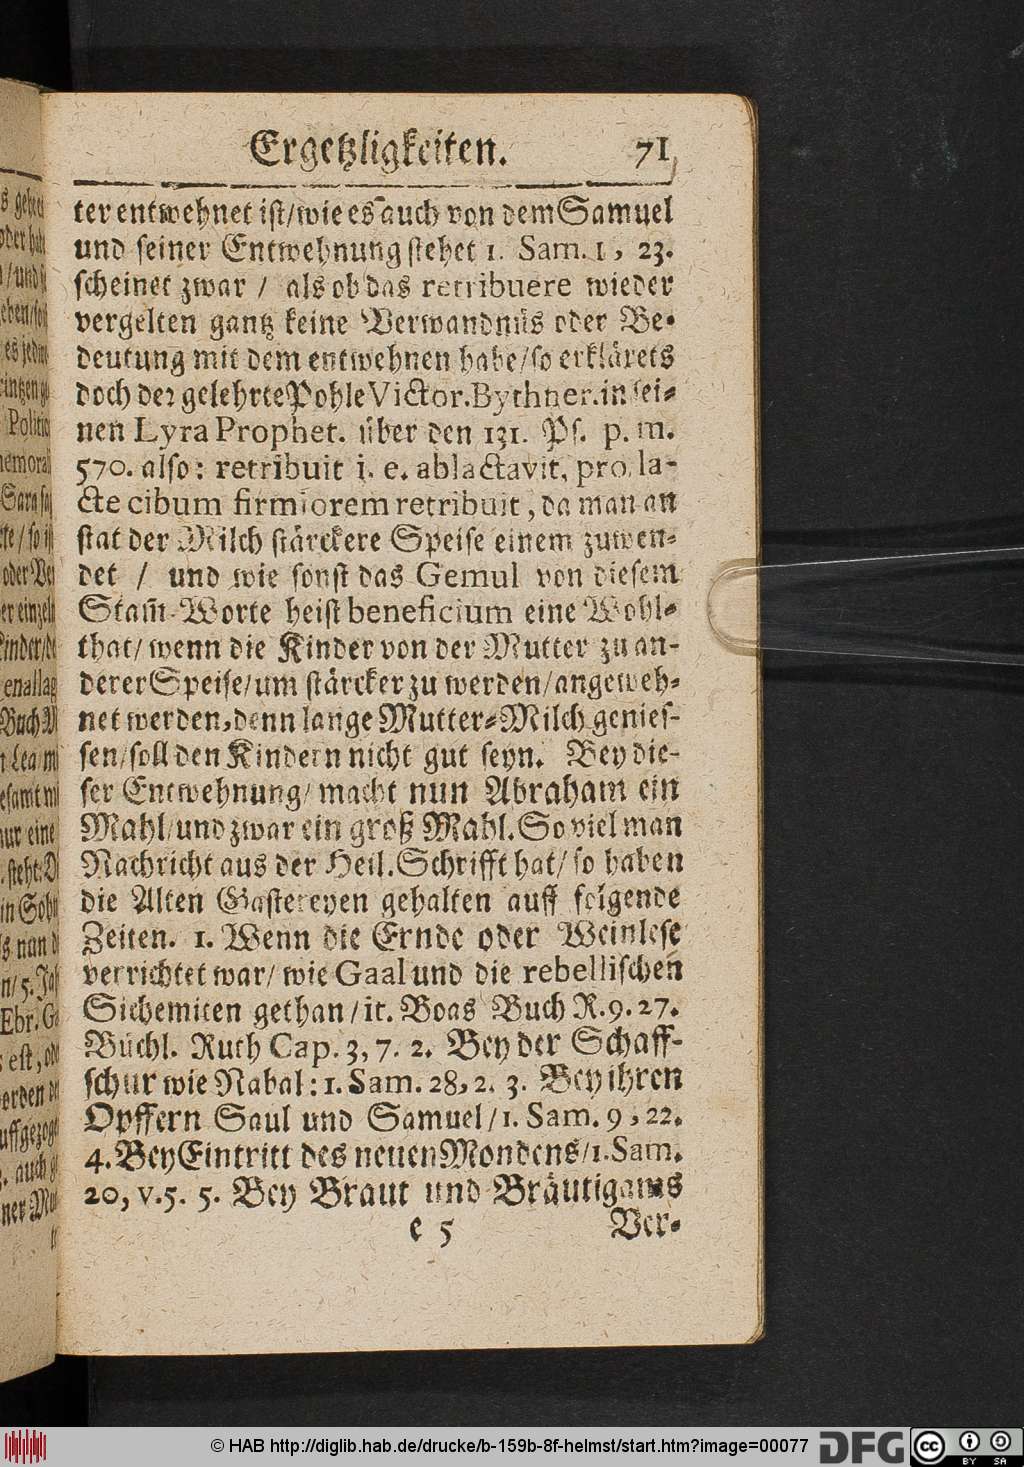 Ergetzligkeiten. 71
ter entwehnet ist/ wie es auch von dem Samuel
und seiner Entwehnung stehet 1. Sam. 1, 23.
scheinet zwar / als ob das retribuere wieder
vergelten gantz keine Verwandnüs oder Be-
deutung mit dem entwehnen habe/ so erklärets
doch der gelehrte Pohle Victor. Bythner. in sei-
nen Lyra Prophet. über den 131. Ps. p. m.
570. also: retribuit i. e. ablactavit, pro la-
cte cibum firmiorem retribuit, da man an
stat der Milch stärckere Speise einem zuwen-
det / und wie sonst das Gemul von diesem
Stam̃-Worte heist beneficium eine Wohl-
that/ wenn die Kinder von der Mutter zu an-
derer Speise/ um stärcker zu werden/ angeweh-
net werden, denn lange Mutter-Milch genies-
sen/ soll den Kindern nicht gut seyn. Bey die-
ser Entwehnung/ macht nun Abraham ein
Mahl/ und zwar ein groß Mahl. So viel man
Nachricht aus der Heil. Schrifft hat/ so haben
die Alten Gastereyen gehalten auff folgende
Zeiten. 1. Wenn die Ernde oder Weinlese
verrichtet war/ wie Gaal und die rebellischen
Sichemiten gethan / it. Boas Buch R. 9. 27.
Büchl. Ruth Cap. 3, 7. 2. Bey der Schaff-
schur wie Nabal: 1. Sam. 28, 2. 3. Bey ihren
Opffern Saul und Samuel / 1. Sam. 9, 22.
4. Bey Eintritt des neuen Mondens/ 1. Sam.
20, v. 5. 5. Bey Braut und Bräutigams
e 5 Ver-
© HAB http://diglib.hab.de/drucke/b-159b-8f-helmst/start.htm?image=00077
DFG
cc BY SA